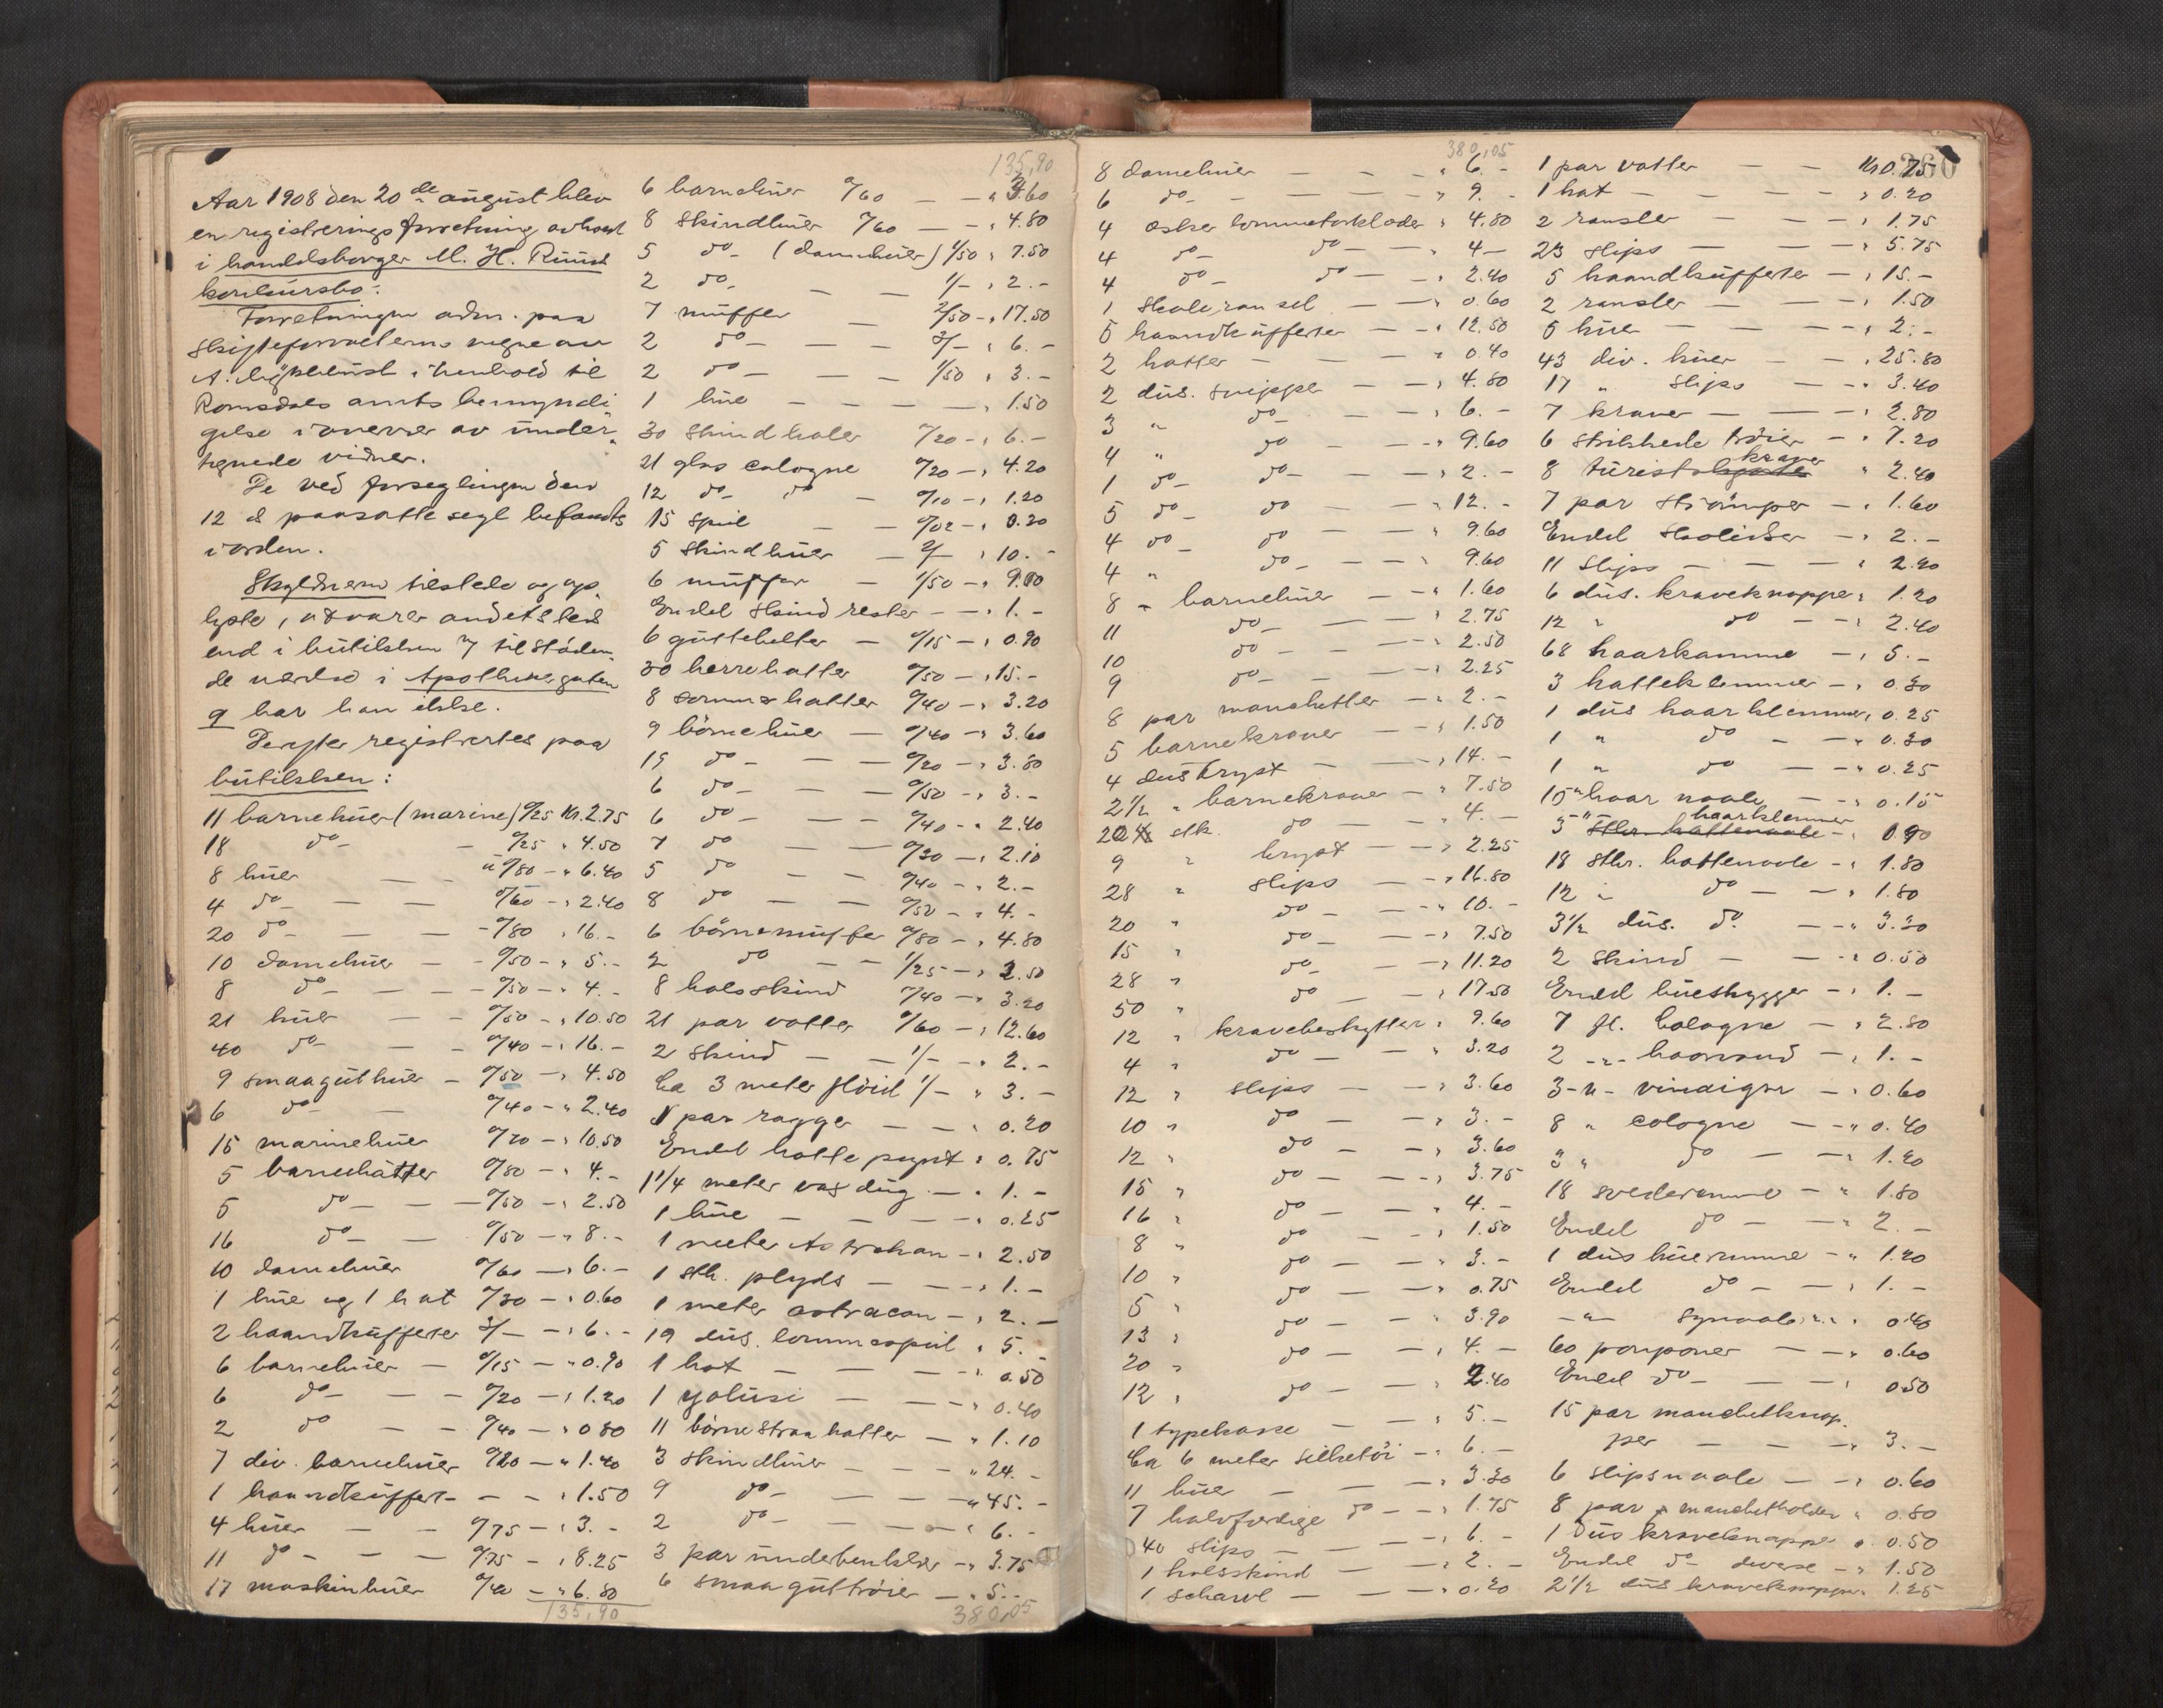 Aar 1908 den 20de august blev
en registreringsforretning avholdt
i handelsborger M. H. Ruud
konkursbo:
Forretningen adm. paa
skifteforvalterens vegne av
A. i henhold til
Romsdals amts bemyndi-
gelse i overvær av under-
tegnede vidner.
De ved forseglingen den
12 ds paasatte segl befandts
i orden.
Skyldneren tilstede og op-
lyste, at varer andetsteds
end i butikken & tilstøden-
de værelse i Apothekergaten
9 har han ikke.
Derefter registrertes paa
butikken:
11 barnehuer (marine) 0/25 Kr. 2.75
18 do - 0/25 " 4.50
8 huer — a 0/80 - " 6.40
4 do — — 0/60 - " 2.40
20 do — — 0/80 " 16.-
10 damehuer — 0/50 - " 5.-
8 do — — 0/50 - " 4.-
21 huer — — 0/50 - " 10.50
40 do — — 0/40 - " 16.-
9 smaaguthuer — 0/50 - " 4.50
6 do — 0/40 - " 2.40
15 marinehuer 0/70 - " 10.50
5 barnehatter 0/80 - " 4.-
5 do — — 0/50 - " 2.50
16 do — 0/50 - " 8.-
10 damehuer 0/60 - " 6.-
1 hue og 1 hat 0/30 - " 0.60
2 haandkufferter 3/- - " 6.-
6 barnehuer — 0/15 - " 0.90
6 do — — 0/20 - " 1.20
2 do — — 0/40 - " 0.80
7 div. barnehuer 0/20 - " 1.40
1 haandkuffert - — - " 1.50
4 huer — — 0/75 - " 3.-
11 do — — 0/75 - " 8.25
17 maskinhuer 0/40 - " 6.80
135,90
135,90
6 barnehuer 0/60 — - " 3.60
8 skindhuer 0/60 — - " 4.80
5 do - (damehuer) 1/50 " 7.50
2 do - — — 1/- " 2.-
7 muffer — 2/50 - " 17.50
2 do — — — 3/- " 6.-
2 do — — — 1/50 " 3.-
1 hue — — — — " 1.50
30 skindhaler 0/20 - " 6.-
21 glas cologne 0/20 - " 4.20
12 do - do — 0/10 - " 1.20
15 spil — — 0/02 - " 0.30
5 skindhuer — 2/- " 10.-
6 muffer — 1/50 - " 9.00
Endel skindrester — - " 1.-
6 guttebelter — 0/15 - " 0.90
30 herrehatter 0/50 - " 15.-
8 sommerhatter 0/40 - " 3.20
9 børnehuer — 0/40 - " 3.60
19 do — — 0/20 - " 3.80
6 do — — 0/50 - " 3.-
6 do — — 0/40 - " 2.40
7 do — — 0/30 - " 2.10
5 do — — 0/40 - " 2.-
8 do — — 0/50 - " 4.-
6 børnemuffer 0/80 - " 4.80
2 do — — 1/25 - " 2.50
8 halsskind 0/40 - " 3.20
21 par votter 0/60 - " 12.60
2 skind — — 1/- - " 2.-
Ca 3 meter fløiel 1/- " 3.-
1 par ragger — — " 0.20
Endel hattepynt " 0.75
1 1/4 meter voxdug — " 1.-
1 hue — — — " 0.25
1 meter Astrakan — " 2.50
1 stk. plyds — — " 1.-
1 meter astracan — " 2.-
19 dus. lommespeil " 5.-
1 hat — — — " 0.50
1 — — " 0.40
11 børnestraahatter — " 1.10
3 skindhuer — — " 24.-
9 do — — — " 45.-
2 do — — — " 6.-
3 par underbenklær - " 3.75
6 smaaguttrøier — " 5.-
380,05
380,05
8 damehuer — — - " 6.-
6 do — — — " 9.-
4 æsker lommetørklæder " 4.80
4 do — do — " 4.-
4 do — do — " 2.40
1 skoleransel — — " 0.60
5 haandkufferter — - " 12.50
2 hatter — — — " 0.40
2 dus. snipper — - " 4.80
3 " do — — " 6.-
4 " do — - " 9.60
1 do do — — - " 2.-
5 do - do — " 12.-
4 do - do — " 9.60
4 " do - — - " 9.60
8 " barnehuer — - " 1.60
11 do — — " 2.75
10 do — - " 2.50
9 do — — - " 2.25
8 par manchetter — " 2.-
5 barnekraver — - " 1.50
4 dus bryst — — " 14.-
2 1/2 " barnekraver — " 7.50
20 stk. do — — " 4.-
9 " bryst — - " 2.25
28 " slips — - " 16.80
20 " do — — - " 10.-
15 " do — — " 7.50
28 " do — — " 11.20
50 " do — — " 17.50
12 " kravebeskytter " 9.60
4 " do — — " 3.20
12 " slips — — " 3.60
10 " do — - " 3.-
12 " do — - " 3.60
15 " do — — " 3.75
16 " do — — " 4.-
8 " do — - " 1.50
10 " do — — " 3.-
5 " do — — " 0.75
13 " do — — " 3.90
20 " do — - " 4.-
12 " do — — " 2.40
1 typekasse — — " 5.-
Ca 6 meter silketøi — " 6.-
11 huer — — — " 3.30
7 halvfærdige do — - " 1.75
40 slips — — — " 6.-
1 halsskind — — " 2.-
1 schawl — — " 0.20
260
1 par votter — — Kr 0.75
1 hat — — — " 0.20
2 ransler — — " 1.75
23 slips — — — " 5.75
5 haandkufferter — " 15.-
2 ransler — — - " 1.50
5 huer — — — - " 2.-
43 div. huer — — " 25.80
17 " slips — - " 3.40
7 kraver — — - " 2.80
6 strikkede trøier — " 7.20
8 turistkraver " 2.40
7 par strømper — " 1.60
Endel - " 2.-
11 slips — — — " 2.20
6 dus. kraveknapper " 1.20
12 " do — - " 2.40
68 haarkamme — " 5.-
3 hatteklemmer — " 0.30
1 dus haarklemmer " 0.25
1 " do — - " 0.30
1 " do — - " 0.25
15 " haarnaale — - " 0.15
3 " haarklemmer — " 0.90
18 stkr. hattenaale — " 1.80
12 " do — — " 1.80
3 1/2 dus. do — - " 3.30
2 skind — — - " 0.50
Endel hueskygger — " 1.-
7 fl. Cologne — " 2.80
2 -"- haarvand — " 1.-
3 -"- vindigsr — " 0.60
8 " cologne — - " 0.40
3 " do — — " 1.20
18 svederemme — " 1.80
Endel do — - " 2.-
1 dus hueremme — " 1.20
Endel do — — " 1.-
-"- synaale " 0.40
60 pomponer — - " 0.60
Endel do — — " 0.50
15 par manchetknap-
per — — — " 3.-
6 slipsnaale — - " 0.60
8 par manchetholdere " 0.80
1 dus kraveknapper " 0.50
Endel do diverse — " 1.50
2 1/2 dus kraveknapper " 1.25